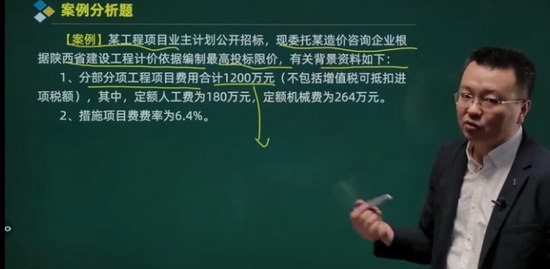 案例分析题
【案例】某工程项目业主计划公开招标，现委托某造价咨询企业根
据陕西省建设工程计价依据编制最高投标限价，有关背景资料如下：
1、分部分项工程项目费用合计1200万元（不包括增值税可抵扣进
项税额），其中，定额人工费为180万元，定额机械费为264万元。
2、措施项目费费率为6.4%。